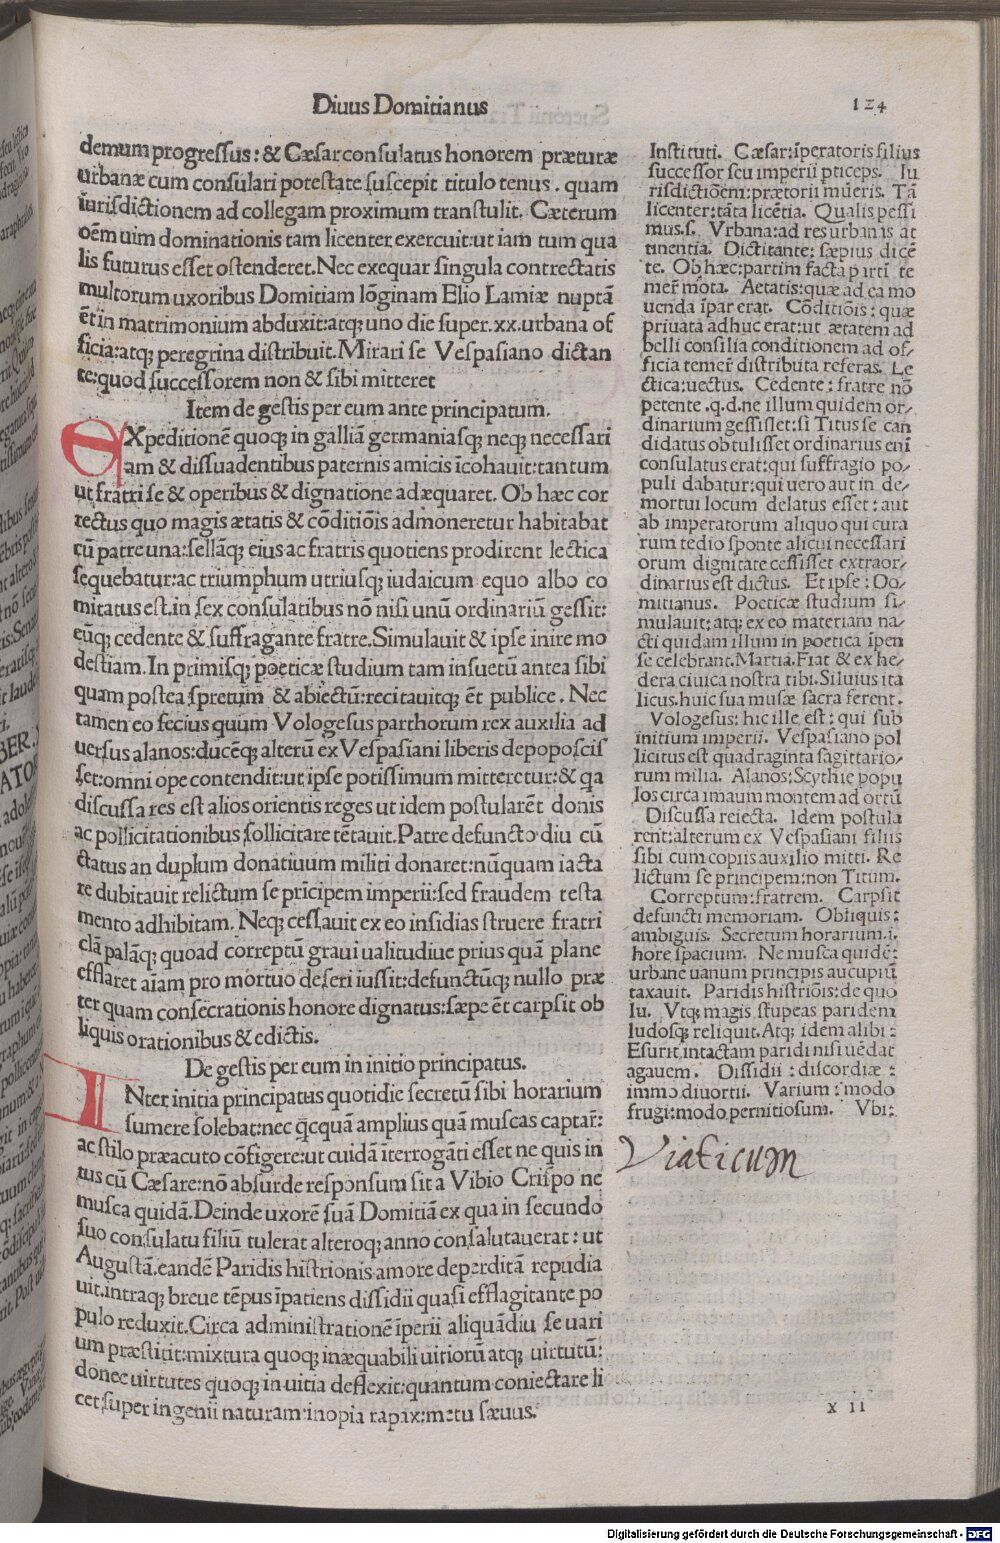 Diuus Domitianus
124
demum progressus: & Cæsar consulatus honorem præturæ
urbanæ cum consulari potestate suscepit titulo tenus. quam
iurisdictionem ad collegam proximum transtulit. Cæterum
oēm uim dominationis tam licenter exercuit: ut iam tum qua
lis futurus esset ostenderet. Nec exequar singula contrectatis
multorum uxoribus Domitiam lōginam Elio Lamiæ nuptā
ēt in matrimonium abduxit: atqȝ uno die super .xx. urbana of
ficia: atqȝ peregrina distribuit. Mirari se Vespasiano dictan
te: quod successorem non & sibi mitteret
Item de gestis per eum ante principatum.
EXpeditionē quoqȝ in galliā germaniasqȝ neqȝ necessari
am & dissuadentibus paternis amicis īcohauit: tantum
ut fratri se & operibus & dignatione adæquaret. Ob hæc cor
rectus quo magis ætatis & cōditiōis admoneretur habitabat
cū patre una: sellāqȝ eius ac fratris quotiens prodirent lectica
sequebatur: ac triumphum utriusqȝ iudaicum equo albo co
mitatus est. in sex consulatibus nō nisi unū ordinariū gessit:
eūqȝ cedente & suffragante fratre. Simulauit & ipse inire mo
destiam. In primisqȝ poeticæ studium tam insuetū antea sibi
quam postea spretum & abiectū: recitauitqȝ ēt publice. Nec
tamen eo secius quum Vologesus parthorum rex auxilia ad
uersus alanos: ducēqȝ alterū ex Vespasiani liberis depoposcis
set: omni ope contendit: ut ipse potissimum mitteretur: & qa
discussa res est alios orientis reges ut idem postularēt donis
ac pollicitationibus sollicitare tētauit. Patre defuncto diu cū
ctatus an duplum donatiuum militi donaret: nūquam iacta
re dubitauit relictum se prīcipem imperii: sed fraudem testa
mento adhibitam. Neqȝ cessauit ex eo insidias struere fratri
clā palāqȝ quoad correptū graui ualitudiue prius quā plane
efflaret aīam pro mortuo deseri iussit: defunctūqȝ nullo præ
ter quam consecrationis honore dignatus: sæpe ēt carpsit ob
liquis orationibus & edictis.
De gestis per eum in initio principatus.
INter initia principatus quotidie secretū sibi horarium
sumere solebat: nec q̄cquā amplius quā muscas captar̄:
ac stilo præacuto cōfigere: ut cuidā īterrogāti esset ne quis in
tus cū Cæsare: nō absurde responsum sit a Vibio Crispo ne
musca quidā. Deinde uxorē suā Domitiā ex qua in secundo
suo consulatu filiū tulerat alteroqȝ anno consalutauerat: ut
Augustā. eandē Paridis histrionis amore deperditā repudia
uit. intraqȝ breue tēpus īpatiens dissidii quasi efflagitante po
pulo reduxit. Circa administrationē īperii aliquādiu se uari
um præstitit: mixtura quoqȝ inæquabili uitiorū atqȝ uirtutū:
donec uirtutes quoqȝ in uitia deflexit: quantum coniectare li
cet. super ingenii naturam: inopia rapax: metu sæuus.
Instituti. Cæsar: īperatoris filius
successor seu imperii pticeps. Iu
risdictiōem: prætorii mūeris. Tā
licenter: tāta licētia. Qualis pessi
mus .s. Vrbana: ad res urbanas at
tinentia. Dictitante: sæpius dicē
te. Ob hæc: partim facta partī te
mer̄ mota. Aetatis: quæ ad ea mo
uenda īpar erat. Cōditiōis: quæ
priuata adhuc erat: ut ætatem ad
belli consilia conditionem ad of
ficia temer̄ distributa referas. Le
ctica: uectus. Cedente: fratre nō
petente .q.d. ne illum quidem or
dinarium gessisset: si Titus se can
didatus obtulisset ordinarius enī
consulatus erat: qui suffragio po
puli dabatur: qui uero aut in de
mortui locum delatus esset: aut
ab imperatorum aliquo qui cura
rum tedio sponte alicui necessari
orum dignitate cessisset extraor
dinarius est dictus. Et ipse: Do
mitianus. Poeticæ studium si
mulauit: atqȝ ex eo materiam na
cti quidam illum in poetica īpen
se celebrant. Martia. Fiat & ex he
dera ciuica nostra tibi. Siluius ita
licus. huic sua musæ sacra ferent.
Vologesus: hic ille est: qui sub
initium imperii. Vespasiano pol
licitus est quadraginta sagittario
rum milia. Alanos: Scythie popu
los circa imaum montem ad ortū
Discussa reiecta. Idem postula
rent: alterum ex Vespasiani filiis
sibi cum copiis auxilio mitti. Re
lictum se principem: non Titum.
Correptum: fratrem. Carpsit
defuncti memoriam. Obliquis:
ambiguis. Secretum horarium .i.
hore spacium. Ne musca quidē:
urbane uanum principis aucupiū
taxauit. Paridis histriōis: de quo
Iu. Vtqȝ magis stupeas paridem
ludosqȝ reliquit. Atqȝ idem alibi:
Esurit intactam paridi nisi uēdat
agauem. Dissidii: discordiæ:
immo diuortii. Varium: modo
frugi: modo pernitiosum. Vbi:
Viaticum
x ii
Digitalisierung gefördert durch die Deutsche Forschungsgemeinschaft - DFG